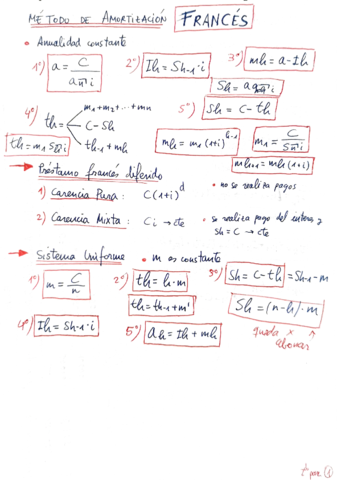 MÉTODO DE AMORTIZACIÓN FRANCÉS
• Anualidad constante
1º) a = C / a n⌉ i
2º) Ih = Sh-1 · i
3º) mh = a - Ih
Sh = a a n-h⌉ i
4º) th = m1 + m2 + ... + mh
C - Sh
th-1 + mh
5º) Sh = C - th
th = m1 S h⌉ i
mh = m1 (1+i)^h-1
m1 = C / S n⌉ i
mh+1 = mh (1+i)
→ Préstamo francés diferido
1) Carencia Pura: C(1+i)^d • no se realiza pagos
2) Carencia Mixta: Ci → cte • se realiza pago del interes y
Sh = C → cte
→ Sistema Uniforme • m es constante
1º) m = C / n
2º) th = h · m
3º) Sh = C - th = Sh-1 - m
th = th-1 + m
Sh = (n-h) · m
4º) Ih = Sh-1 · i
5º) ah = Ih + mh
queda x
abonar
1ª para ①